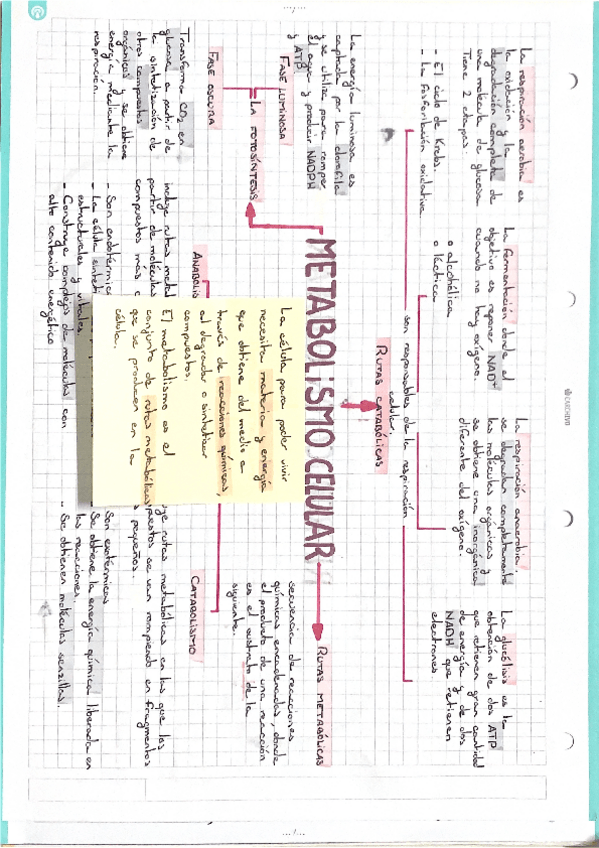 La respiración aerobia es
la oxidación y la
degradación completa de
una molécula de glucosa
Tiene 2 etapas.
- El ciclo de Krebs.
- La fosforilación oxidativa
La fermentación donde el
objetivo es reponer NAD+
cuando no hay oxígeno.
o alcohólica
o láctica
La respiración anaerobia,
se degradan completamente
las moléculas orgánicas y
se obtiene una inorgánica
diferente del oxígeno.
La glucólisis es la
obtención de dos ATP
que retienen gran cantidad
de energía y de dos
NADH que retienen
electrones.
son responsables de la respiración
celular.
RUTAS CATABÓLICAS
METABOLISMO CELULAR
RUTAS METABÓLICAS
secuencia de reacciones
químicas encadenadas, donde
el producto de una reacción
es el sustrato de la
siguiente.
LA FOTOSÍNTESIS
FASE LUMINOSA
La energía luminosa es
captada por la clorofila
y se utiliza para romper
el agua y producir NADPH
y ATP
FASE OSCURA
Transforma CO2 en
glucosa a partir de
la sintetización de
otros compuestos
orgánicos y se obtiene
energía mediante la
respiración.
La célula para poder vivir
necesita materia y energía
que obtiene del medio a
través de reacciones químicas,
al degradar o sintetizar
compuestos.
El metabolismo es el
conjunto de rutas metabólicas
que se producen en la
célula.
ANABOLIS
incluye rutas metab
partir de moléculas
compuestos más c
- Son endotérmic
- La célula sinteti
estructurales y vitales.
- Construye complejos de moléculas con
alto contenido energético
CATABOLISMO
uye rutas metabólicas en las que los
puestos se van rompiendo en fragmentos
pequeños.
Son exotérmicas
- Se obtiene la energía química liberada en
las reacciones.
- Se obtienen moléculas sencillas.